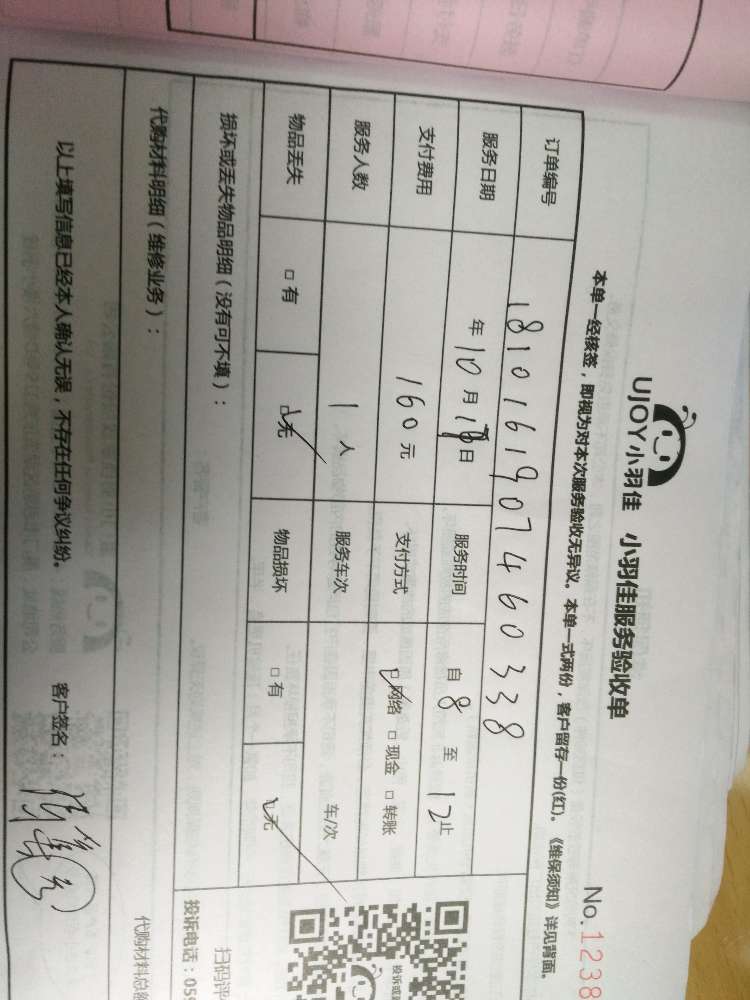 UJOY小羽佳 小羽佳服务验收单
No.1238
本单一经核签，即视为对本次服务验收无异议。本单一式两份，客户留存一份(红)。《维保须知》详见背面。
订单编号 1810161907460338
服务日期 年 10 月 18 日 服务时间 自 8 至 12 止
支付费用 160 元 支付方式 ☑网络 □现金 □转账
服务人数 1 人 服务车次 车/次
物品丢失 □有 ☑无 物品损坏 □有 ☑无
损坏或丢失物品明细（没有可不填）：
代购材料明细（维修业务）：
代购材料总额
以上填写信息已经本人确认无误，不存在任何争议纠纷。 客户签名：
扫码评
投诉电话：059